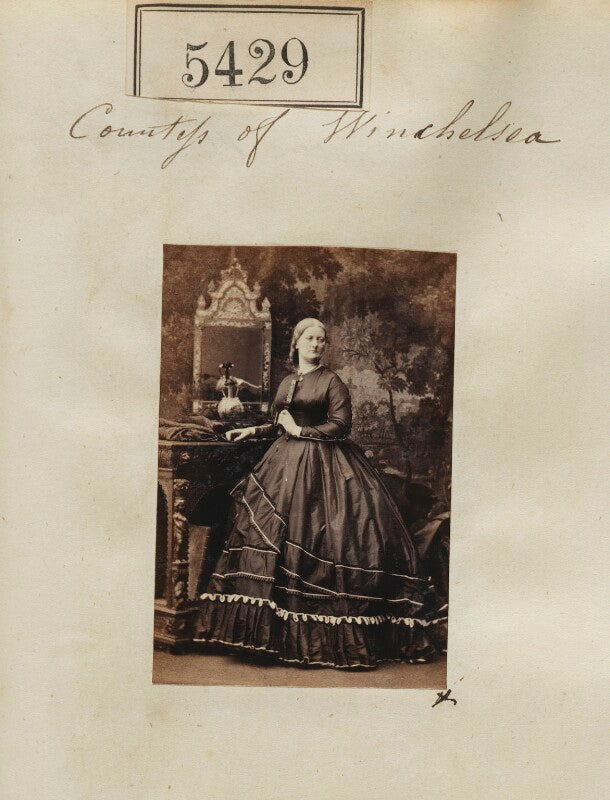 5429
Countess of Winchelsea